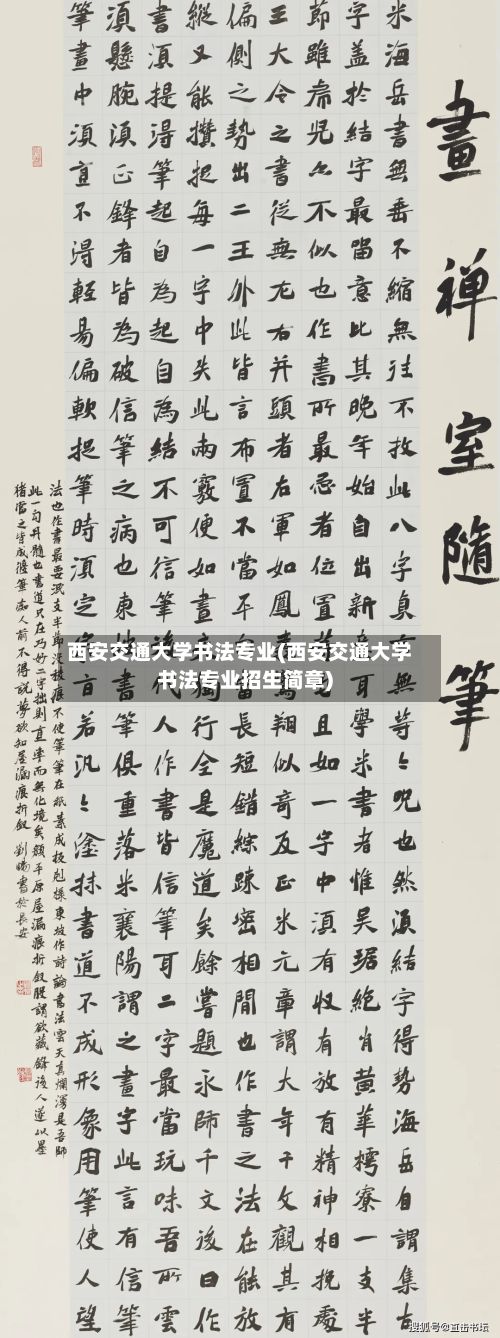 畫禪室隨筆
米海岳書無垂不縮無往不收此八字真無等〻呪也然須結字得勢海岳自謂集古
字蓋於結字最留意比其晚年始自出新耳學米書者惟吳琚絕肖黃華樗寮一支半
節雖虎兒亦不似也作書所最忌者位置且如一字中須有收有放有精神相挽處
王大令之書從無左右并頭者右軍如鳳翔似奇反正米元章謂大年千文觀其有
偏側之勢出二王外此皆言布置不當平當長短錯綜疎密相間也作書之法在能放
縱又能攢捉每一字中失此兩竅便如晝獨行全是魔道矣餘嘗題永師千文後曰作
書須提得筆起自為起自為結不可信筆代人作書皆信筆耳二字最當玩味吾所雲
須懸腕須正鋒者皆為破信筆之病也東書筆俱重落米襄陽謂之畫字此言有信筆
筆畫中須直不得輕易偏軟捉筆時須定旨若汎〻塗抹書道不成形象用筆使人望
法也作書最要泯支半節沒稜痕不使筆筆在紙素成板刻樣東坡作詩論書法雲天真爛漫是吾師
此一句丹髓也書道只在巧妙二字拙則直率而無化境矣顏平原屋漏痕折釵股謂欲藏鋒後人遂以墨
豬當之皆成偃筆癡人前不得說夢欲知屋漏痕折釵 劉暢書於長安
西安交通大学书法专业(西安交通大学
书法专业招生简章)
搜狐号@直击书坛